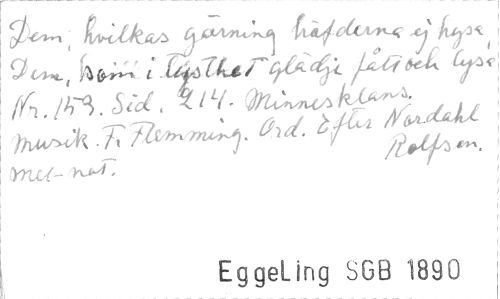 Dem, hvilkas gärning häfderna ej hysa,
Dem, som i tysthet glädje fått och lysa
Nr. 153. Sid. 214. Minnesklans.
Musik. Fr Flemming. Ord. Efter Nordahl
Rolfsen.
mel-not.
EggeLing SGB 1890